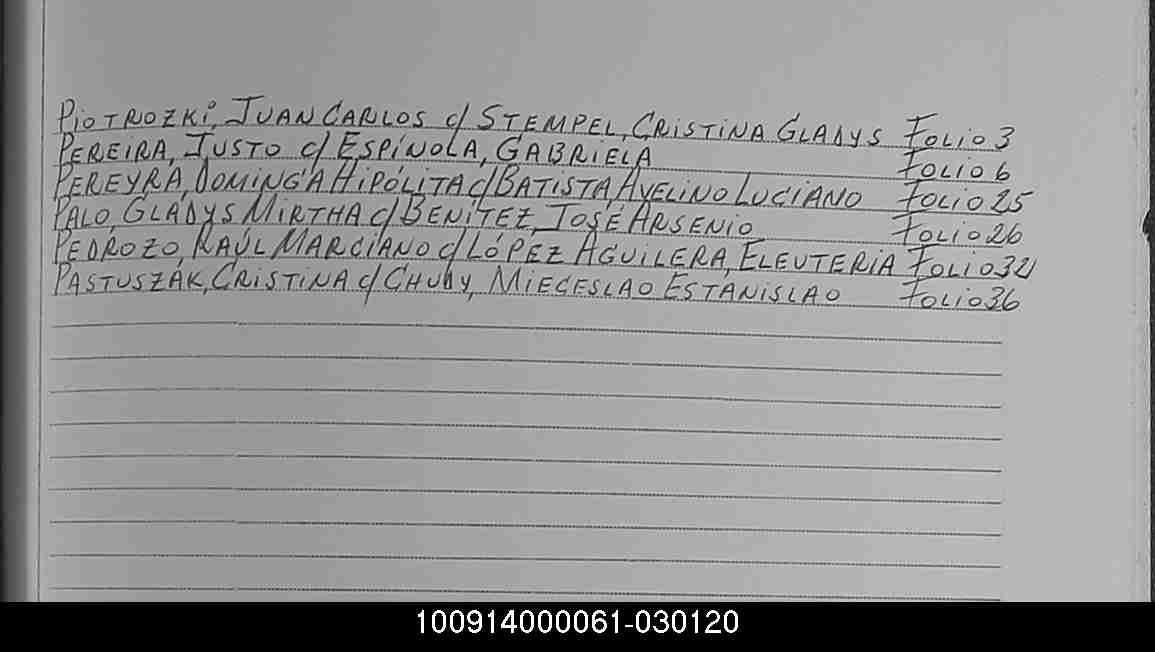 Piotrozki, Juan Carlos c/ Stempel, Cristina Gladys Folio 3
Pereira, Justo c/ Espínola, Gabriela Folio 6
Pereyra, Dominga Hipólita c/ Batista, Avelino Luciano Folio 25
Palo, Gladys Mirtha c/ Benítez, José Arsenio Folio 26
Pedrozo, Raúl Marciano c/ López Aguilera, Eleuteria Folio 32
Pastuszák, Cristina c/ Chudy, Mieceslao Estanislao Folio 36
100914000061-030120